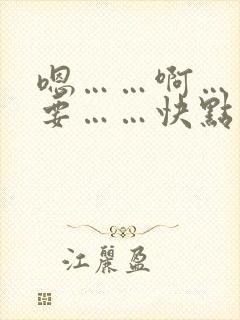 嗯……啊…
要……快點
江麗盈